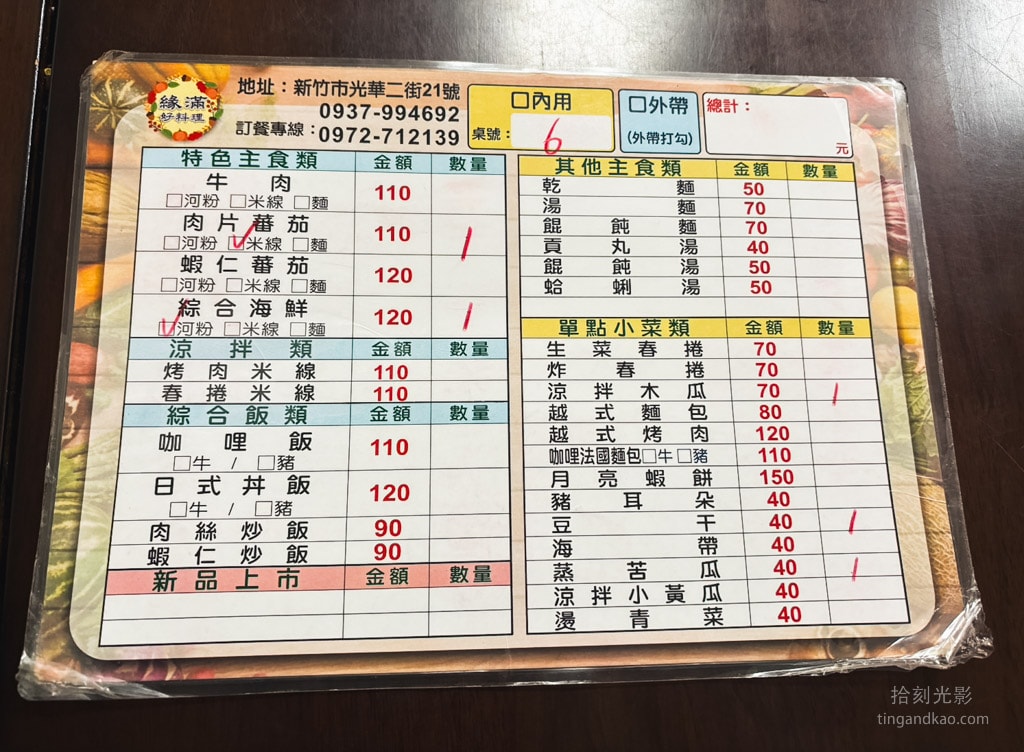 緣滿
好料理
地址：新竹市光華二街21號
0937-994692
訂餐專線：0972-712139
□內用
桌號：6
□外帶
(外帶打勾)
總計：
元
特色主食類 金額 數量
牛肉 110
□河粉 □米線 □麵
肉片蕃茄 110 1
□河粉 ☑米線 □麵
蝦仁蕃茄 120
□河粉 □米線 □麵
綜合海鮮 120 1
☑河粉 □米線 □麵
涼拌類 金額 數量
烤肉米線 110
春捲米線 110
綜合飯類 金額 數量
咖哩飯 110
□牛 / □豬
日式丼飯 120
□牛 / □豬
肉絲炒飯 90
蝦仁炒飯 90
新品上市 金額 數量
其他主食類 金額 數量
乾麵 50
湯麵 70
餛飩麵 70
貢丸湯 40
餛飩湯 50
蛤蜊湯 50
單點小菜類 金額 數量
生菜春捲 70
炸春捲 70
涼拌木瓜 70 1
越式麵包 80
越式烤肉 120
咖哩法國麵包□牛□豬 110
月亮蝦餅 150
豬耳朵 40
豆干 40 1
海帶 40
蒸苦瓜 40 1
涼拌小黃瓜 40
燙青菜 40
拾刻光影
tingandkao.com